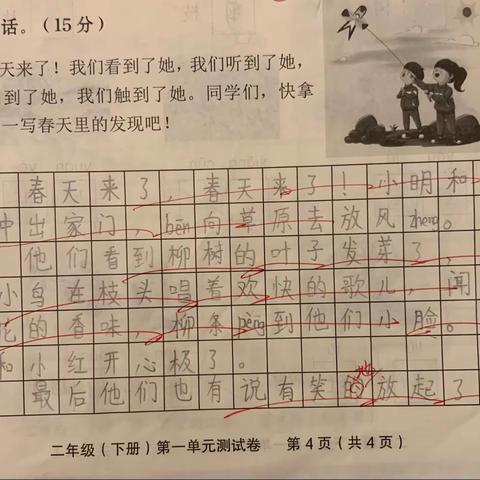 话。(15分)
天来了！我们看到了她，我们听到了她，
到了她，我们触到了她。同学们，快拿
一写春天里的发现吧！
春天来了，春天来了！小明和
冲出家门，bēn向草原去放风zheng。
他们看到柳树的叶子发芽了，
小鸟在枝头唱着欢快的歌儿，闻
花的香味，柳条pèng到他们小脸。
和小红开心极了。
最后他们也有说有笑的地放起了
二年级（下册）第一单元测试卷 第4页（共4页）